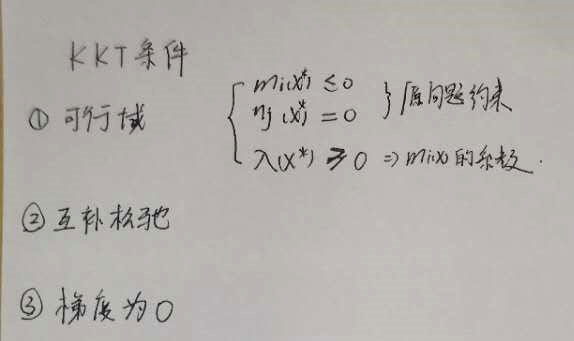 KKT条件
① 可行域
mi(x*) ≤ 0
nj(x*) = 0 } 原问题约束
λ(x*) ≥ 0 ⇒ mi(x) 的系数.
② 互补松弛
③ 梯度为0